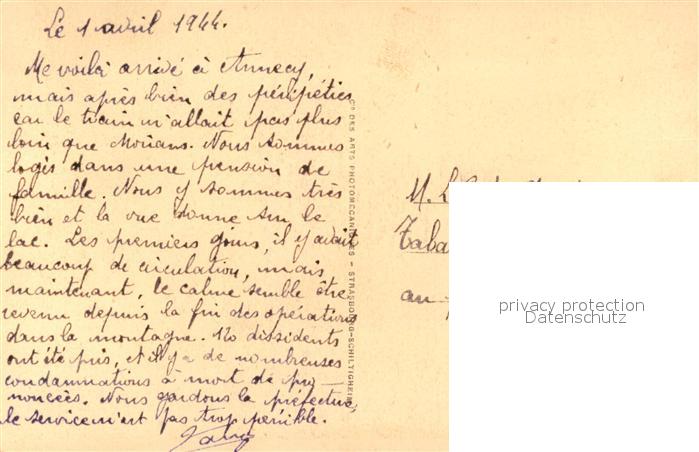 Le 1 avril 1944.
Me voilà arrivé à Annecy,
mais après bien des péripéties
car le train n'allait pas plus
loin que Moirans. Nous sommes
logés dans une pension de
famille. Nous y sommes très
bien et la vue donne sur le
lac. Les premiers jours, il y avait
beaucoup de circulation, mais
maintenant, le calme semble être
revenu depuis la fin des opérations
dans la montagne. 120 dissidents
ont été pris, et il y a de nombreuses
condamnations à mort de pro-
noncées. Nous gardons la préfecture,
le service n'est pas trop pénible.
Cie DES ARTS PHOTOMECANIQUES - STRASBOURG-SCHILTIGHEIM
M. L
Taba
au
privacy protection
Datenschutz